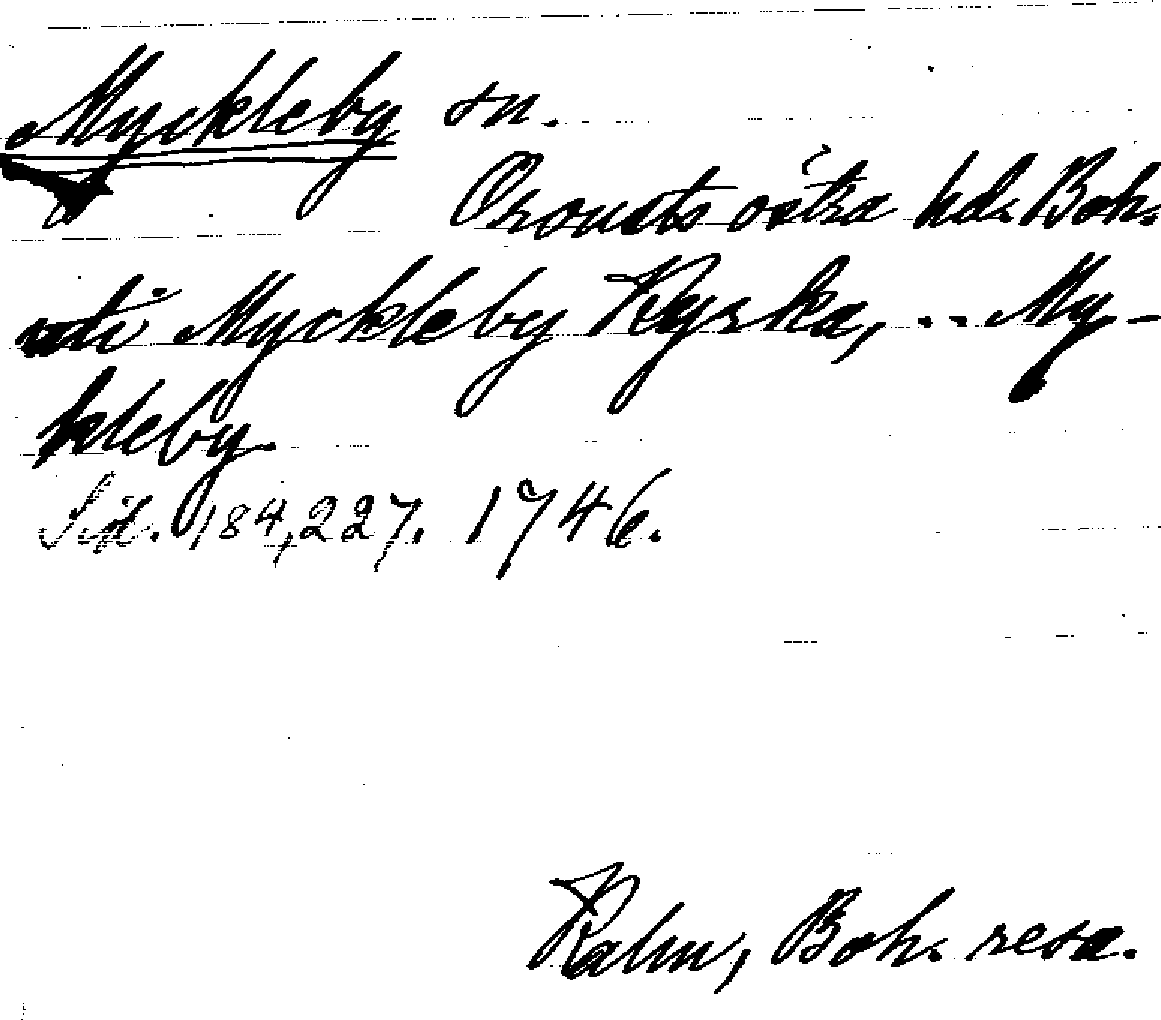 Myckleby sn.
Orousts östra hd. Boh.
uti Myckleby Kyrka, .. My-
kleby.
Sid. 184, 227. 1746.
Kalm, Boh. resa.